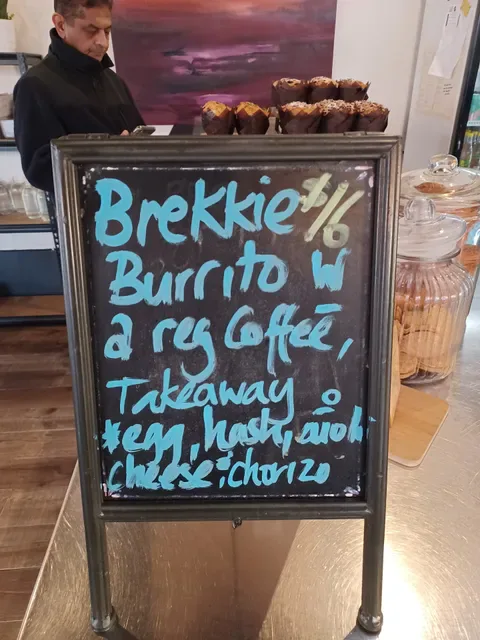 Brekkie $16
Burrito W
a reg Coffee,
Takeaway o
*egg, hash, aioli
cheese; chorizo